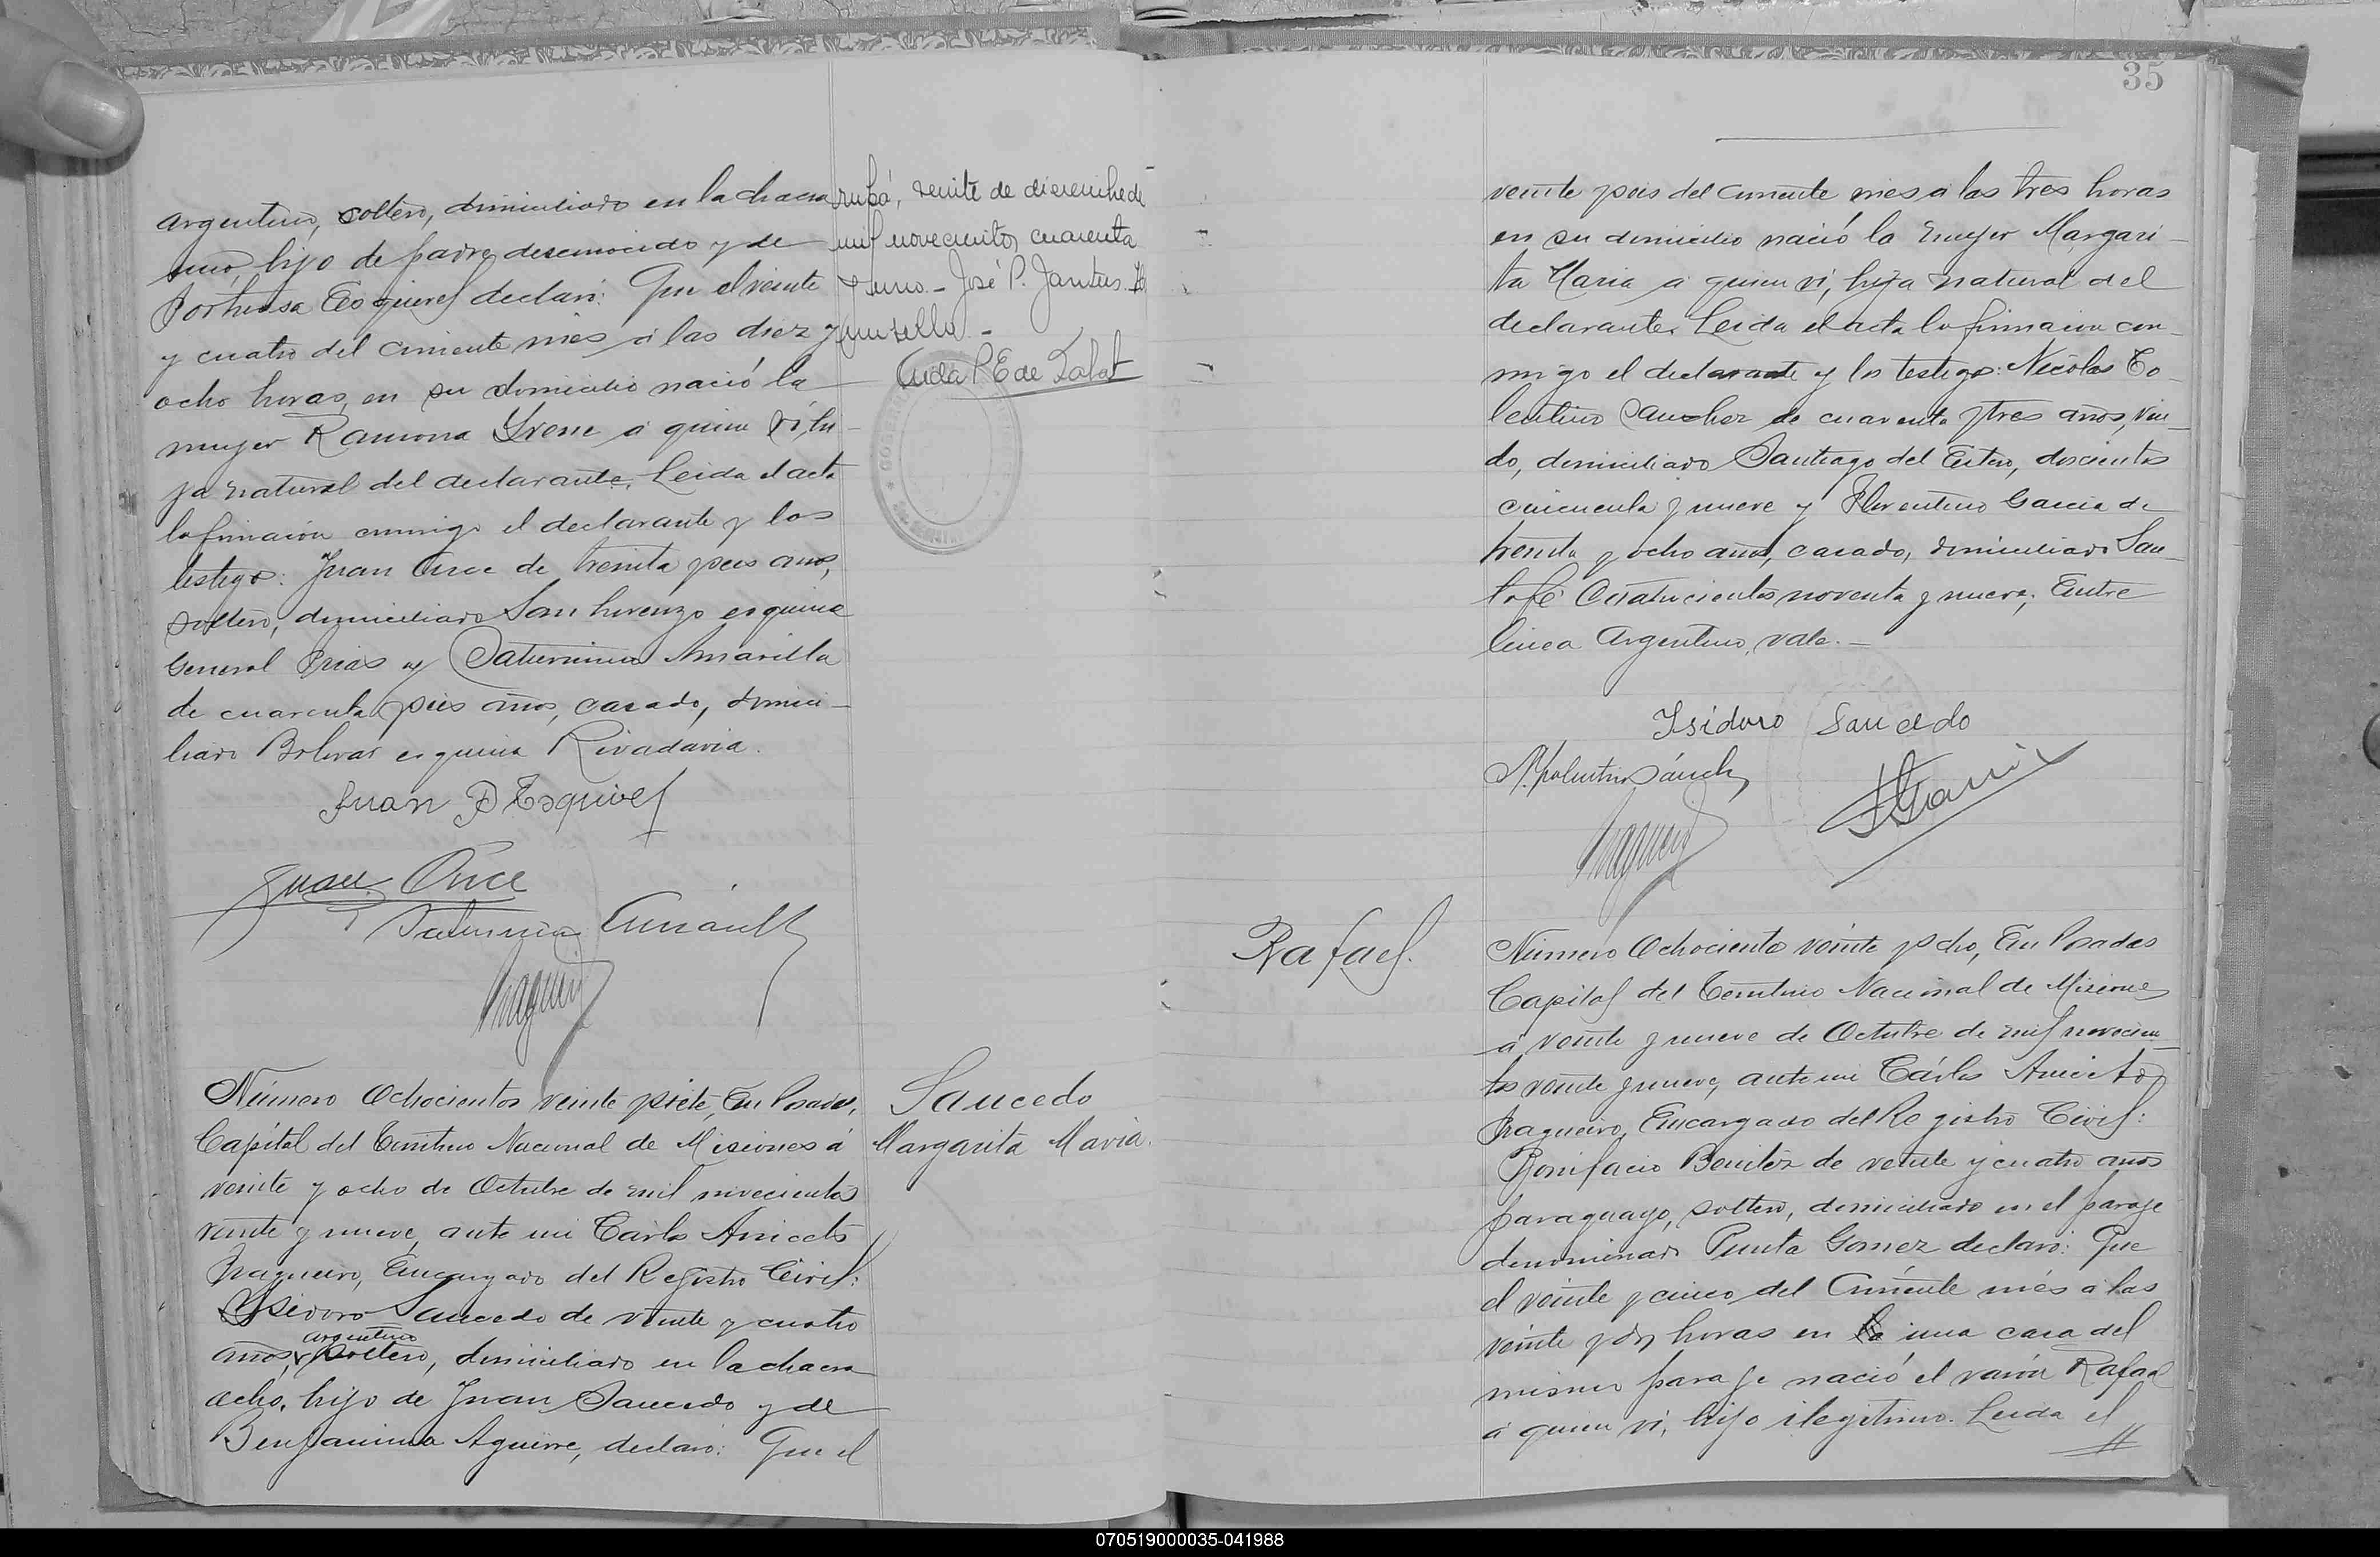 argentino, soltero, domiciliado en la chacra
uno, hijo de padre desconocido y de
Fortunosa Esquivel declaró: Que el veinte
y cuatro del corriente mes á las diez y
ocho horas, en su domicilio nació la
mujer Ramona Irene á quien ví, hi-
ja natural del declarante. Leida el acta
la firmaron conmigo el declarante y los
testigos: Juan Once de treinta y seis años,
soltero, domiciliado San Lorenzo esquina
General Frias y Saturnino Amarilla
de cuarenta y seis años, casado, domici-
liado Bolivar esquina Rivadavia.
Juan Esquivel
Juan Once
Saturnino
rupá, veinte de diciembre de
mil novecientos cuarenta
y uno - José P. Jantus.
un sello. -
Aida P E de
Número Ochocientos veinte y siete, En Posadas,
Capital del Territorio Nacional de Misiones á
veinte y ocho de Octubre de mil novecientos
veinte y nueve, ante mi Carlos Aniceto
Fragueiro, Encargado del Registro Civil:
Ysidoro Saucedo de veinte y cuatro
argentino
años, soltero, domiciliado en la chacra
ocho, hijo de Juan Saucedo y de
Benjamina Aguirre, declaró: Que el
Saucedo
Margarita Maria.
35
veinte y seis del corriente mes á las tres horas
en su domicilio nació la mujer Margari-
ta Maria á quien ví, hija natural del
declarante. Leida el acta la firmaron con-
migo el declarante y los testigos: Nicolas To-
lentino Sanchez de cuarenta y tres años, viu-
do, domiciliado Santiago del Estero, doscientos
cincuenta y nueve y Florentino Garcia de
treinta y ocho años, casado, domiciliado San-
ta Fé Cuatrocientos noventa y nueve; Entre
linea Argentino, vale.-
Isidoro Saucedo
N. Tolentino Sánchez
Rafael.
Número Ochocientos veinte y ocho, En Posadas
Capital del Territorio Nacional de Misiones
á veinte y nueve de Octubre de mil novecien-
tos veinte y nueve, ante mi Cárlos Aniceto
Fragueiro, Encargado del Registro Civil:
Bonifacio Benitez de veinte y cuatro años
paraguayo, soltero, domiciliado en el paraje
denominado Punta Gomez declaró: Que
el veinte y cinco del corriente més á las
veinte y dos horas en la una casa del
mismo paraje nació el varón Rafael
á quien ví, hijo ilegitimo. Leida el
070519000035-041988